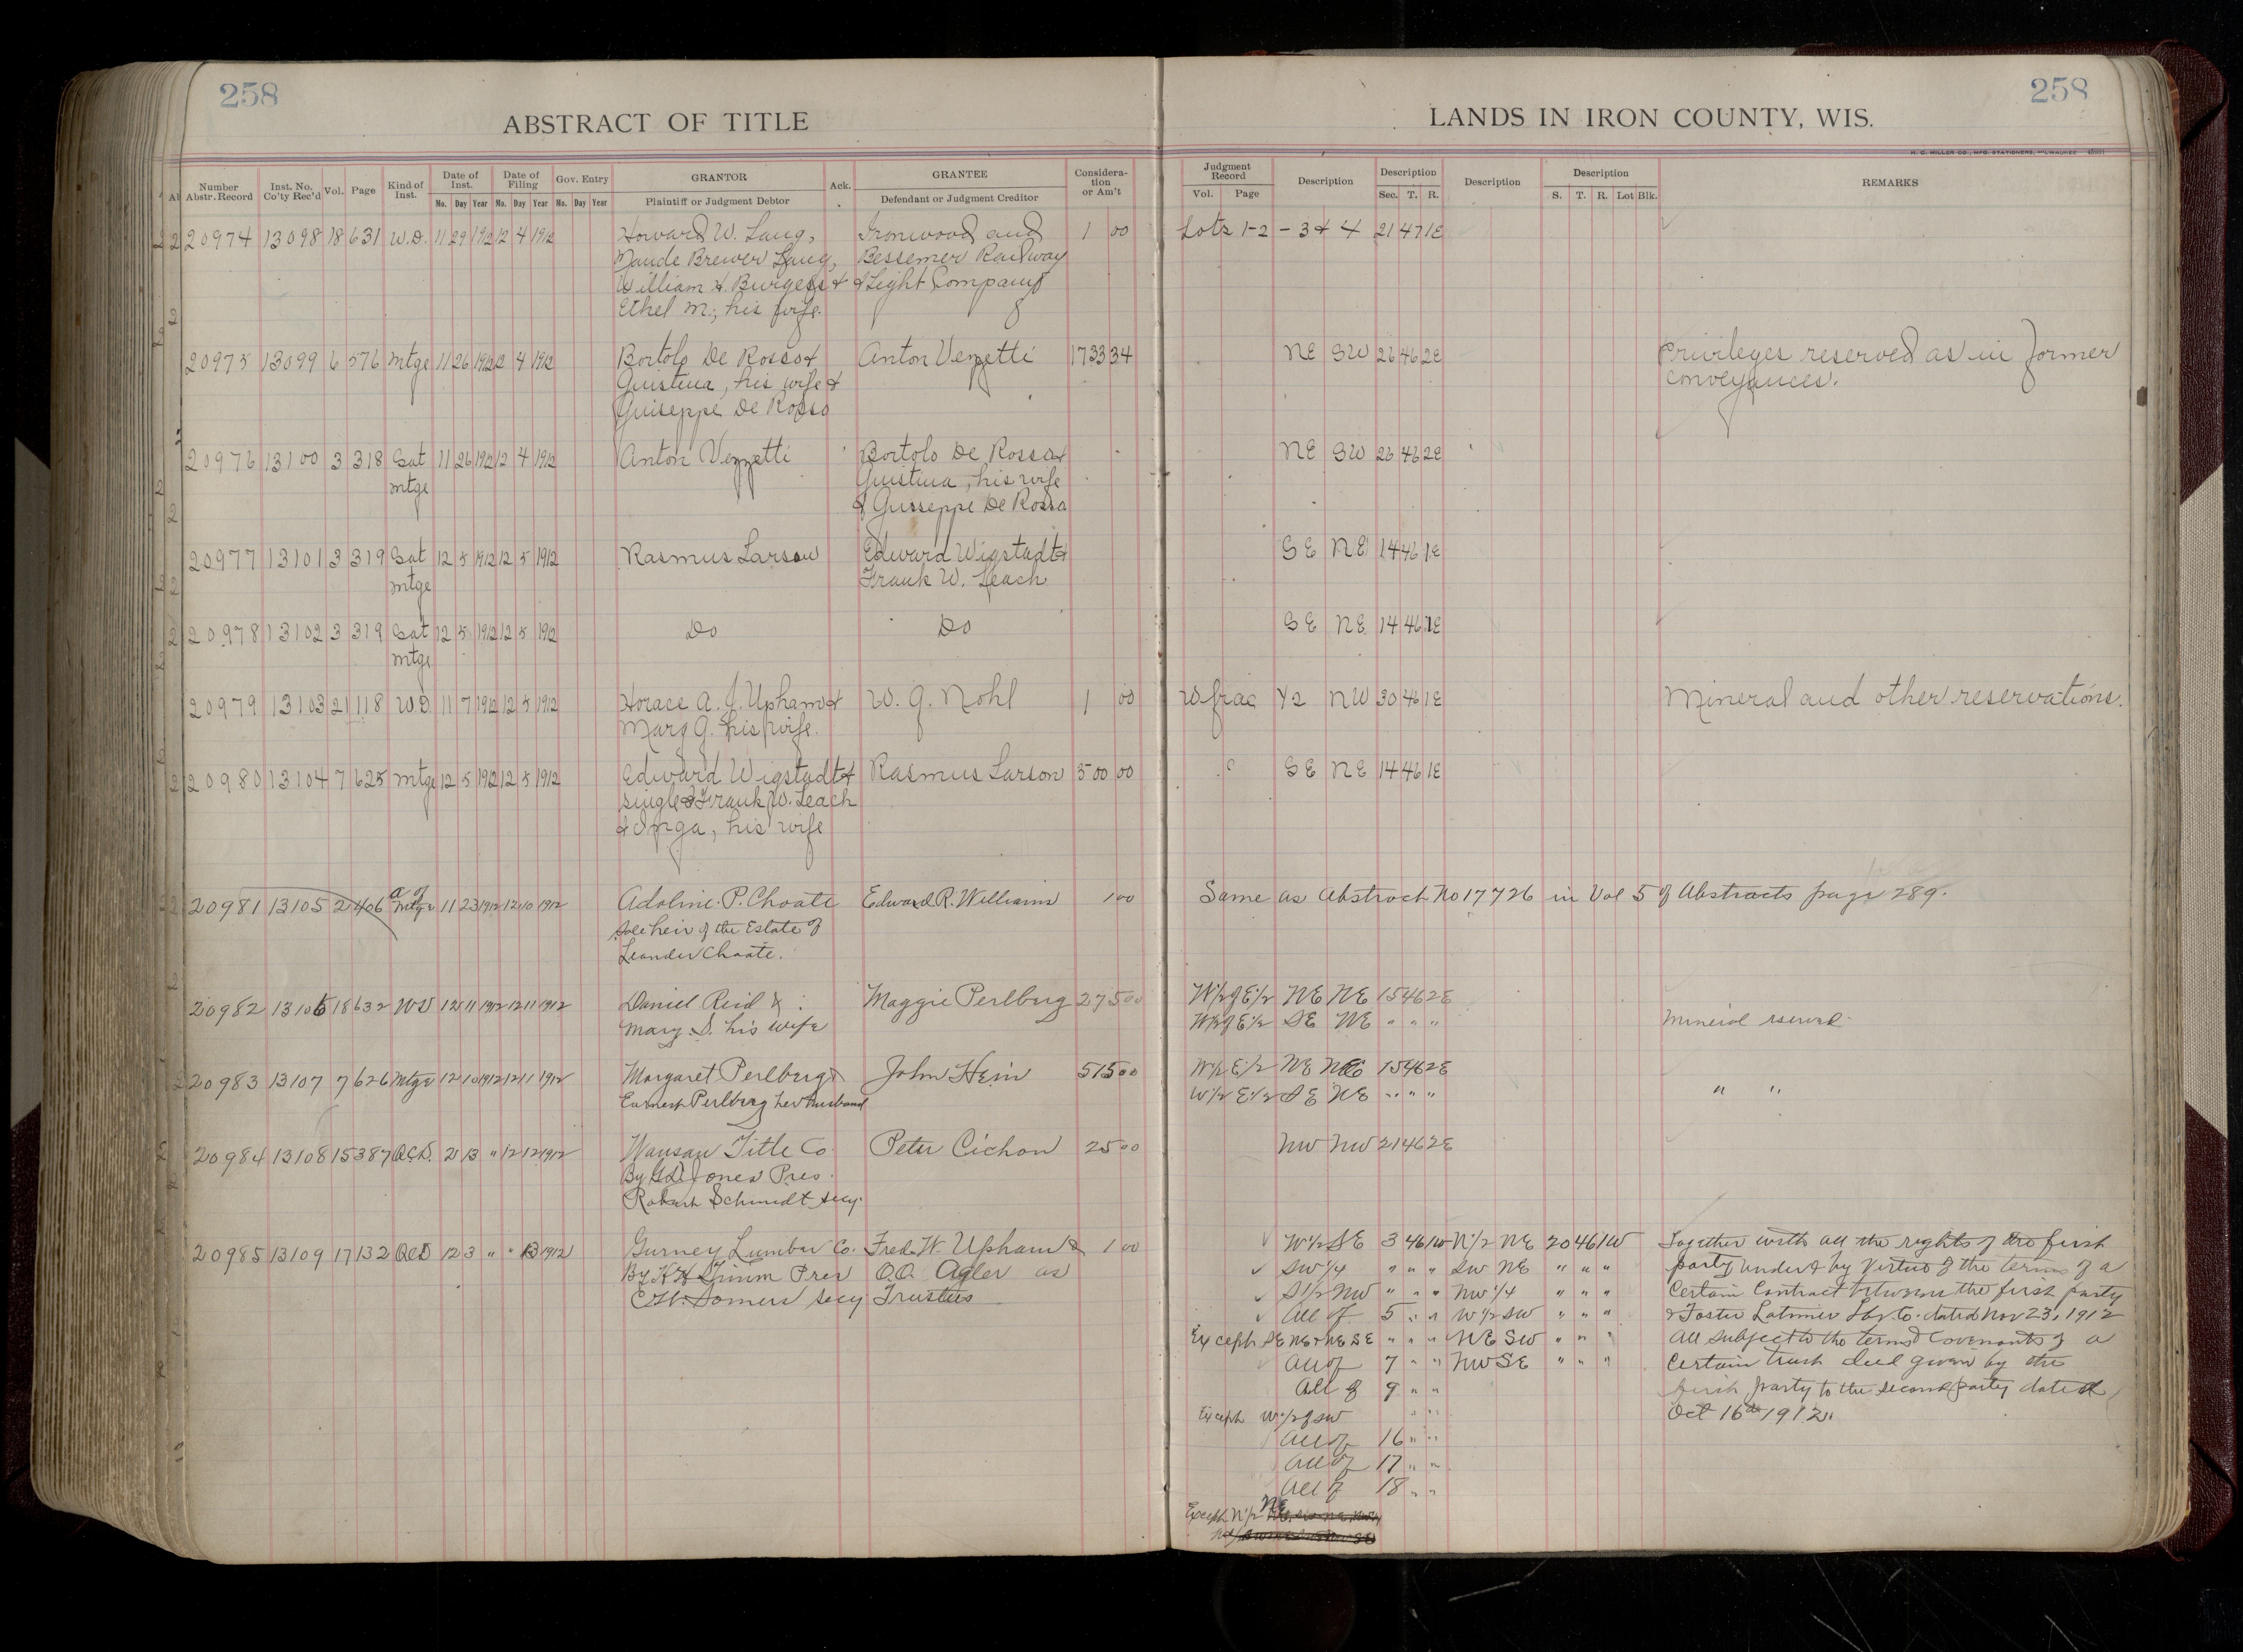 258
258
ABSTRACT OF TITLE
LANDS IN IRON COUNTY, WIS.
H. C. MILLER CO., MFG. STATIONERS, MILWAUKEE
Number Abstr. Record Inst. No. Co'ty Rec'd Vol. Page Kind of Inst. Date of Inst. No. Day Year Date of Filing No. Day Year Gov. Entry No. Day Year GRANTOR Plaintiff or Judgment Debtor Ack. GRANTEE Defendant or Judgment Creditor Considera-tion or Am't
Judgment Record Vol. Page Description Description Sec. T. R. Description Description S. T. R. Lot Blk. REMARKS
20974 13098 18 631 W.D. 11 29 1912 12 4 1912 Howard W. Lang, Ironwood and 1 00 Lots 1-2 - 3 & 4 21 47 1E
Maude Brewer Lang, Bessemer Railway
William H. Burgess & & Light Company
Ethel M., his wife.
20975 13099 6 576 Mtge 11 26 1912 12 4 1912 Bortolo De Rosso & Anton Vezzetti 1733 34 NE SW 26 46 2E Privileges reserved as in former
Guistina, his wife & conveyances.
Guiseppe De Rosso
20976 13100 3 318 Sat 11 26 1912 12 4 1912 Anton Vezzetti Bortolo De Rosso & NE SW 26 46 2E
mtge Guistina, his wife
& Guiseppe De Rosso
20977 13101 3 319 Sat 12 5 1912 12 5 1912 Rasmus Larson Edward Wigstadt & SE NE 14 46 1E
mtge Frank W. Leach
20978 13102 3 319 Sat 12 5 1912 12 5 1912 Do Do SE NE 14 46 1E
mtge
20979 13103 21 118 W.D. 11 7 1912 12 5 1912 Horace A. J. Upham & W. G. Nohl 1 00 W frac 1/2 NW 30 46 1E Mineral and other reservations.
Mary G. his wife.
20980 13104 7 625 Mtge 12 5 1912 12 5 1912 Edward Wigstadt & Rasmus Larson 500 00 SE NE 14 46 1E
single & Frank W. Leach
& Inga, his wife
20981 13105 2 406 a of Mtge 11 23 1912 12 10 1912 Adoline P. Choate Edward R. Williams 1 00 Same as Abstract No 17726 in Vol 5 of Abstracts page 289.
Sole heir of the Estate of
Leander Choate.
20982 13106 18 632 WD 12 11 1912 12 11 1912 Daniel Reid & Maggie Perlberg 275 00 W1/2 of E1/2 NE NE 15 46 2E
Mary S. his wife W1/2 of E1/2 SE NE " " " Mineral reserved.
20983 13107 7 626 Mtge 12 10 1912 12 11 1912 Margaret Perlberg & John Hein 515 00 W1/2 E1/2 NE NE 15 46 2E
Earnest Perlberg her husband W1/2 E1/2 SE NE " " " " "
20984 13108 15 387 Q.C.D. 2 13 " 12 12 1912 Wausau Title Co. Peter Cichon 25 00 NW NW 21 46 2E
By G.D. Jones Pres.
Robert Schmidt secy.
20985 13109 17 132 QCD 12 3 " " 13 1912 Gurney Lumber Co. Fred W. Upham & 1 00 W1/2 SE 3 46 1W N1/2 NE 20 46 1W Together with all the rights of the first
By Grimm Pres O.O. Agler as SW1/4 " " " SW NE " " " party under & by virtue of the terms of a
Somers secy Trustees S1/2 NW " " " NW1/4 " " " Certain Contract between the first party
All of 5 " " W1/2 SW " " " & Foster Latimer Lbr. Co. dated Nov 23, 1912
Except SE NE & NE SE " " " NE SW " " " All subject to the terms & Covenants of a
All of 7 " " NW SE " " " Certain trust deed given by the
All of 9 " " first party to the second party dated
Except W1/2 of SW " " Oct 16th 1912.
All of 16 " "
All of 17 " "
All of 18 " "
Except N1/2 NE